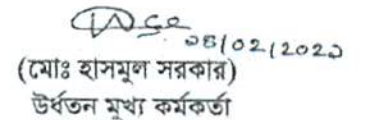 ০৪/০২/২০২১
(মোঃ হাসমুল সরকার)
উর্ধতন মুখ্য কর্মকর্তা